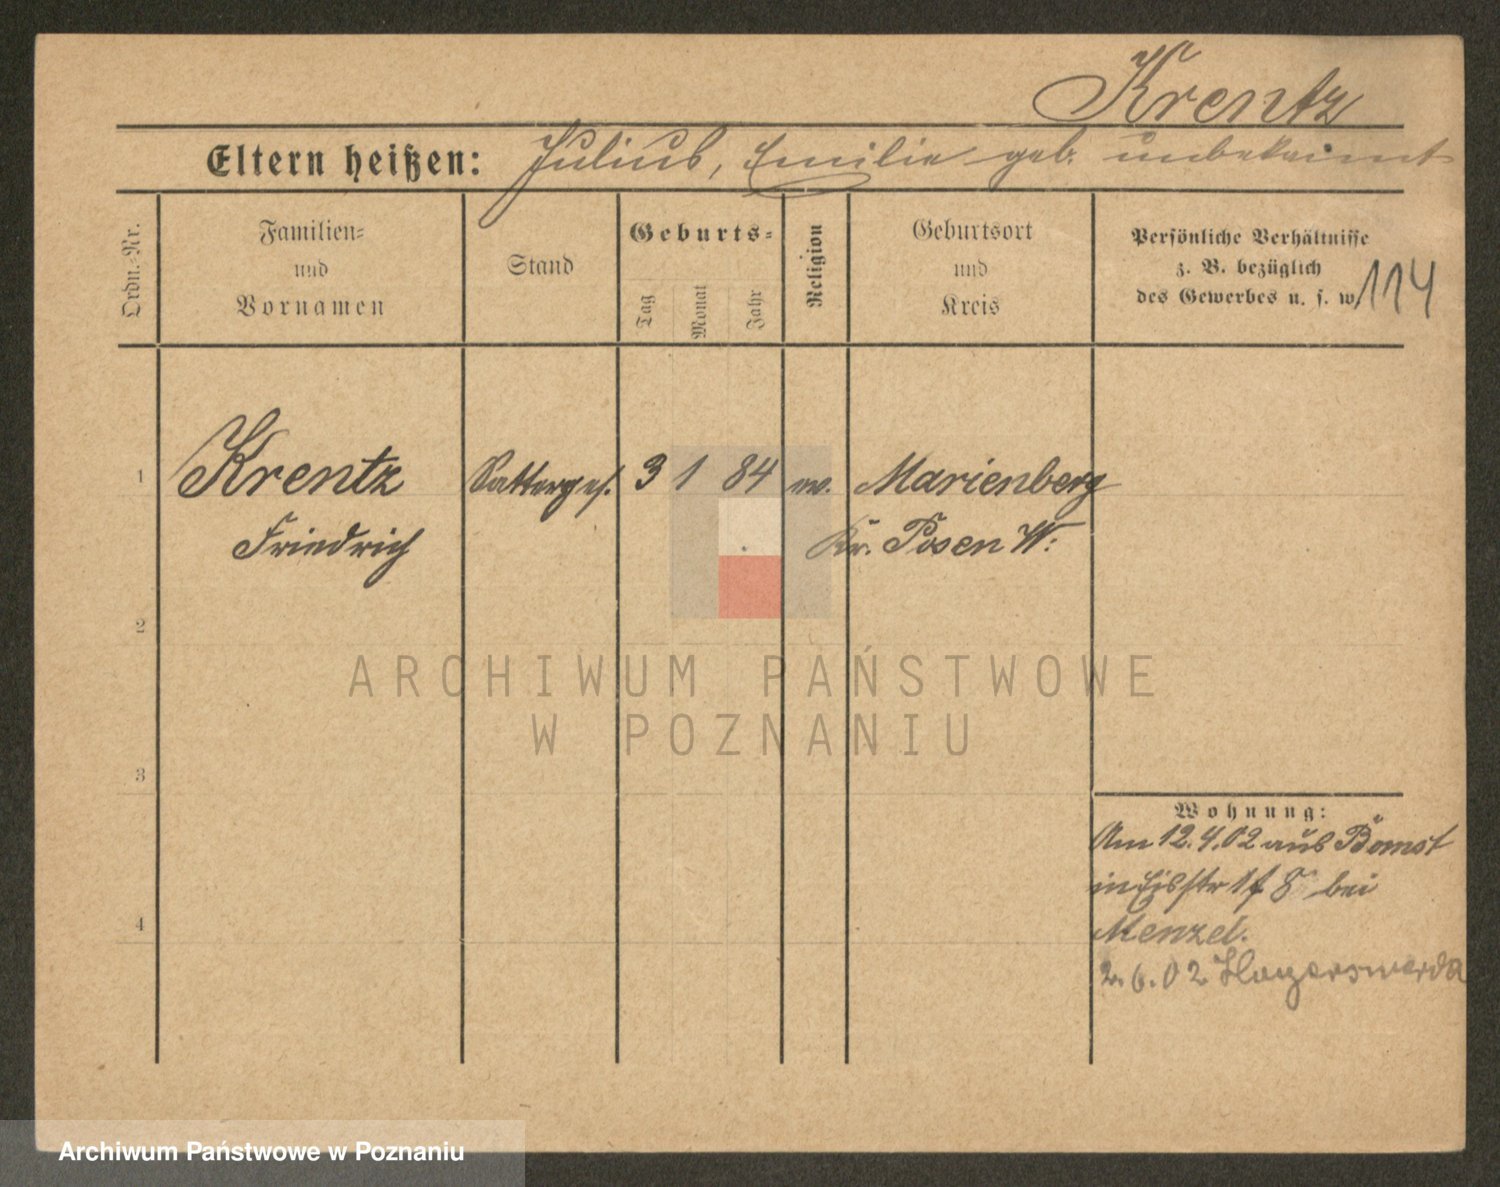 Krentz
Eltern heißen: Julius, Emilie geb. unbekannt
Ordn.-Nr.
Familien-
und
Vornamen
Stand
Geburts-
Tag
Monat
Jahr
Religion
Geburtsort
und
Kreis
Persönliche Verhältnisse
z. B. bezüglich
des Gewerbes u. s. w.
114
1 Krentz Sattlerges. 3 1 84 ev. Marienberg
Friedrich Kr. Posen W.
2
ARCHIWUM PAŃSTWOWE
W POZNANIU
3
Wohnung:
Am 12.4.02 aus Bomst
in 8 bei
4
Menzel.
2.6.02 Hoyerswerda
Archiwum Państwowe w Poznaniu